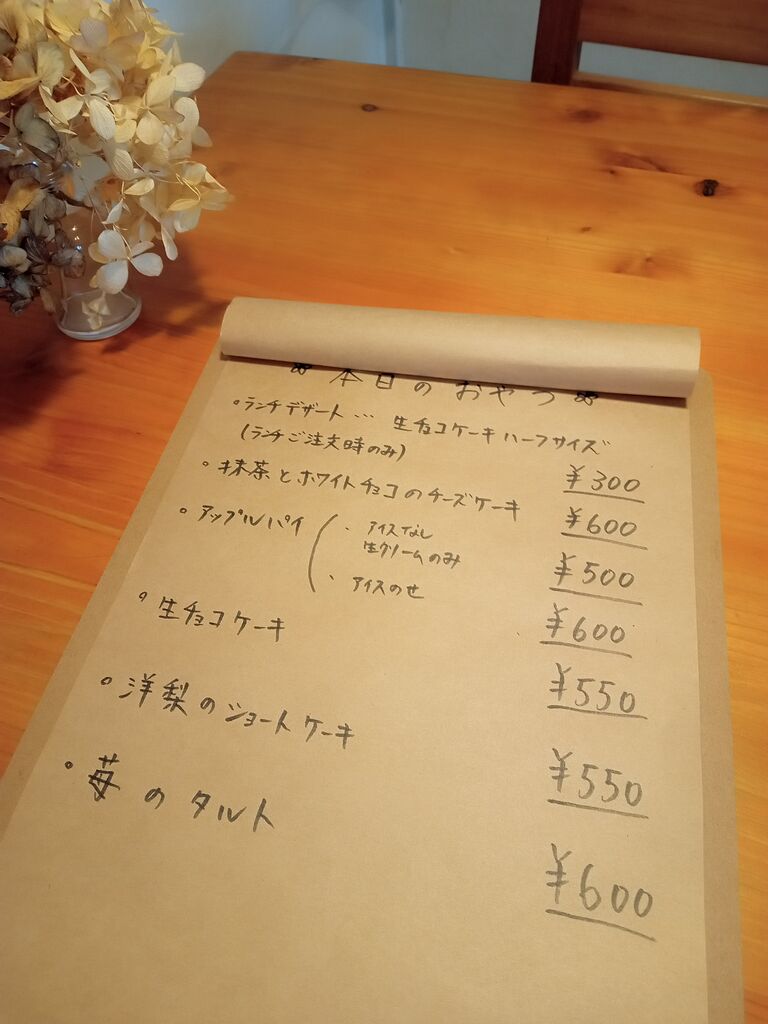 本日のおやつ
。ランチデザート… 生チョコケーキハーフサイズ
(ランチご注文時のみ) ¥300
。抹茶とホワイトチョコのチーズケーキ ¥600
。アップルパイ ・アイスなし
生クリームのみ ¥500
・アイスのせ ¥600
。生チョコケーキ ¥550
。洋梨のショートケーキ ¥550
。苺のタルト ¥600